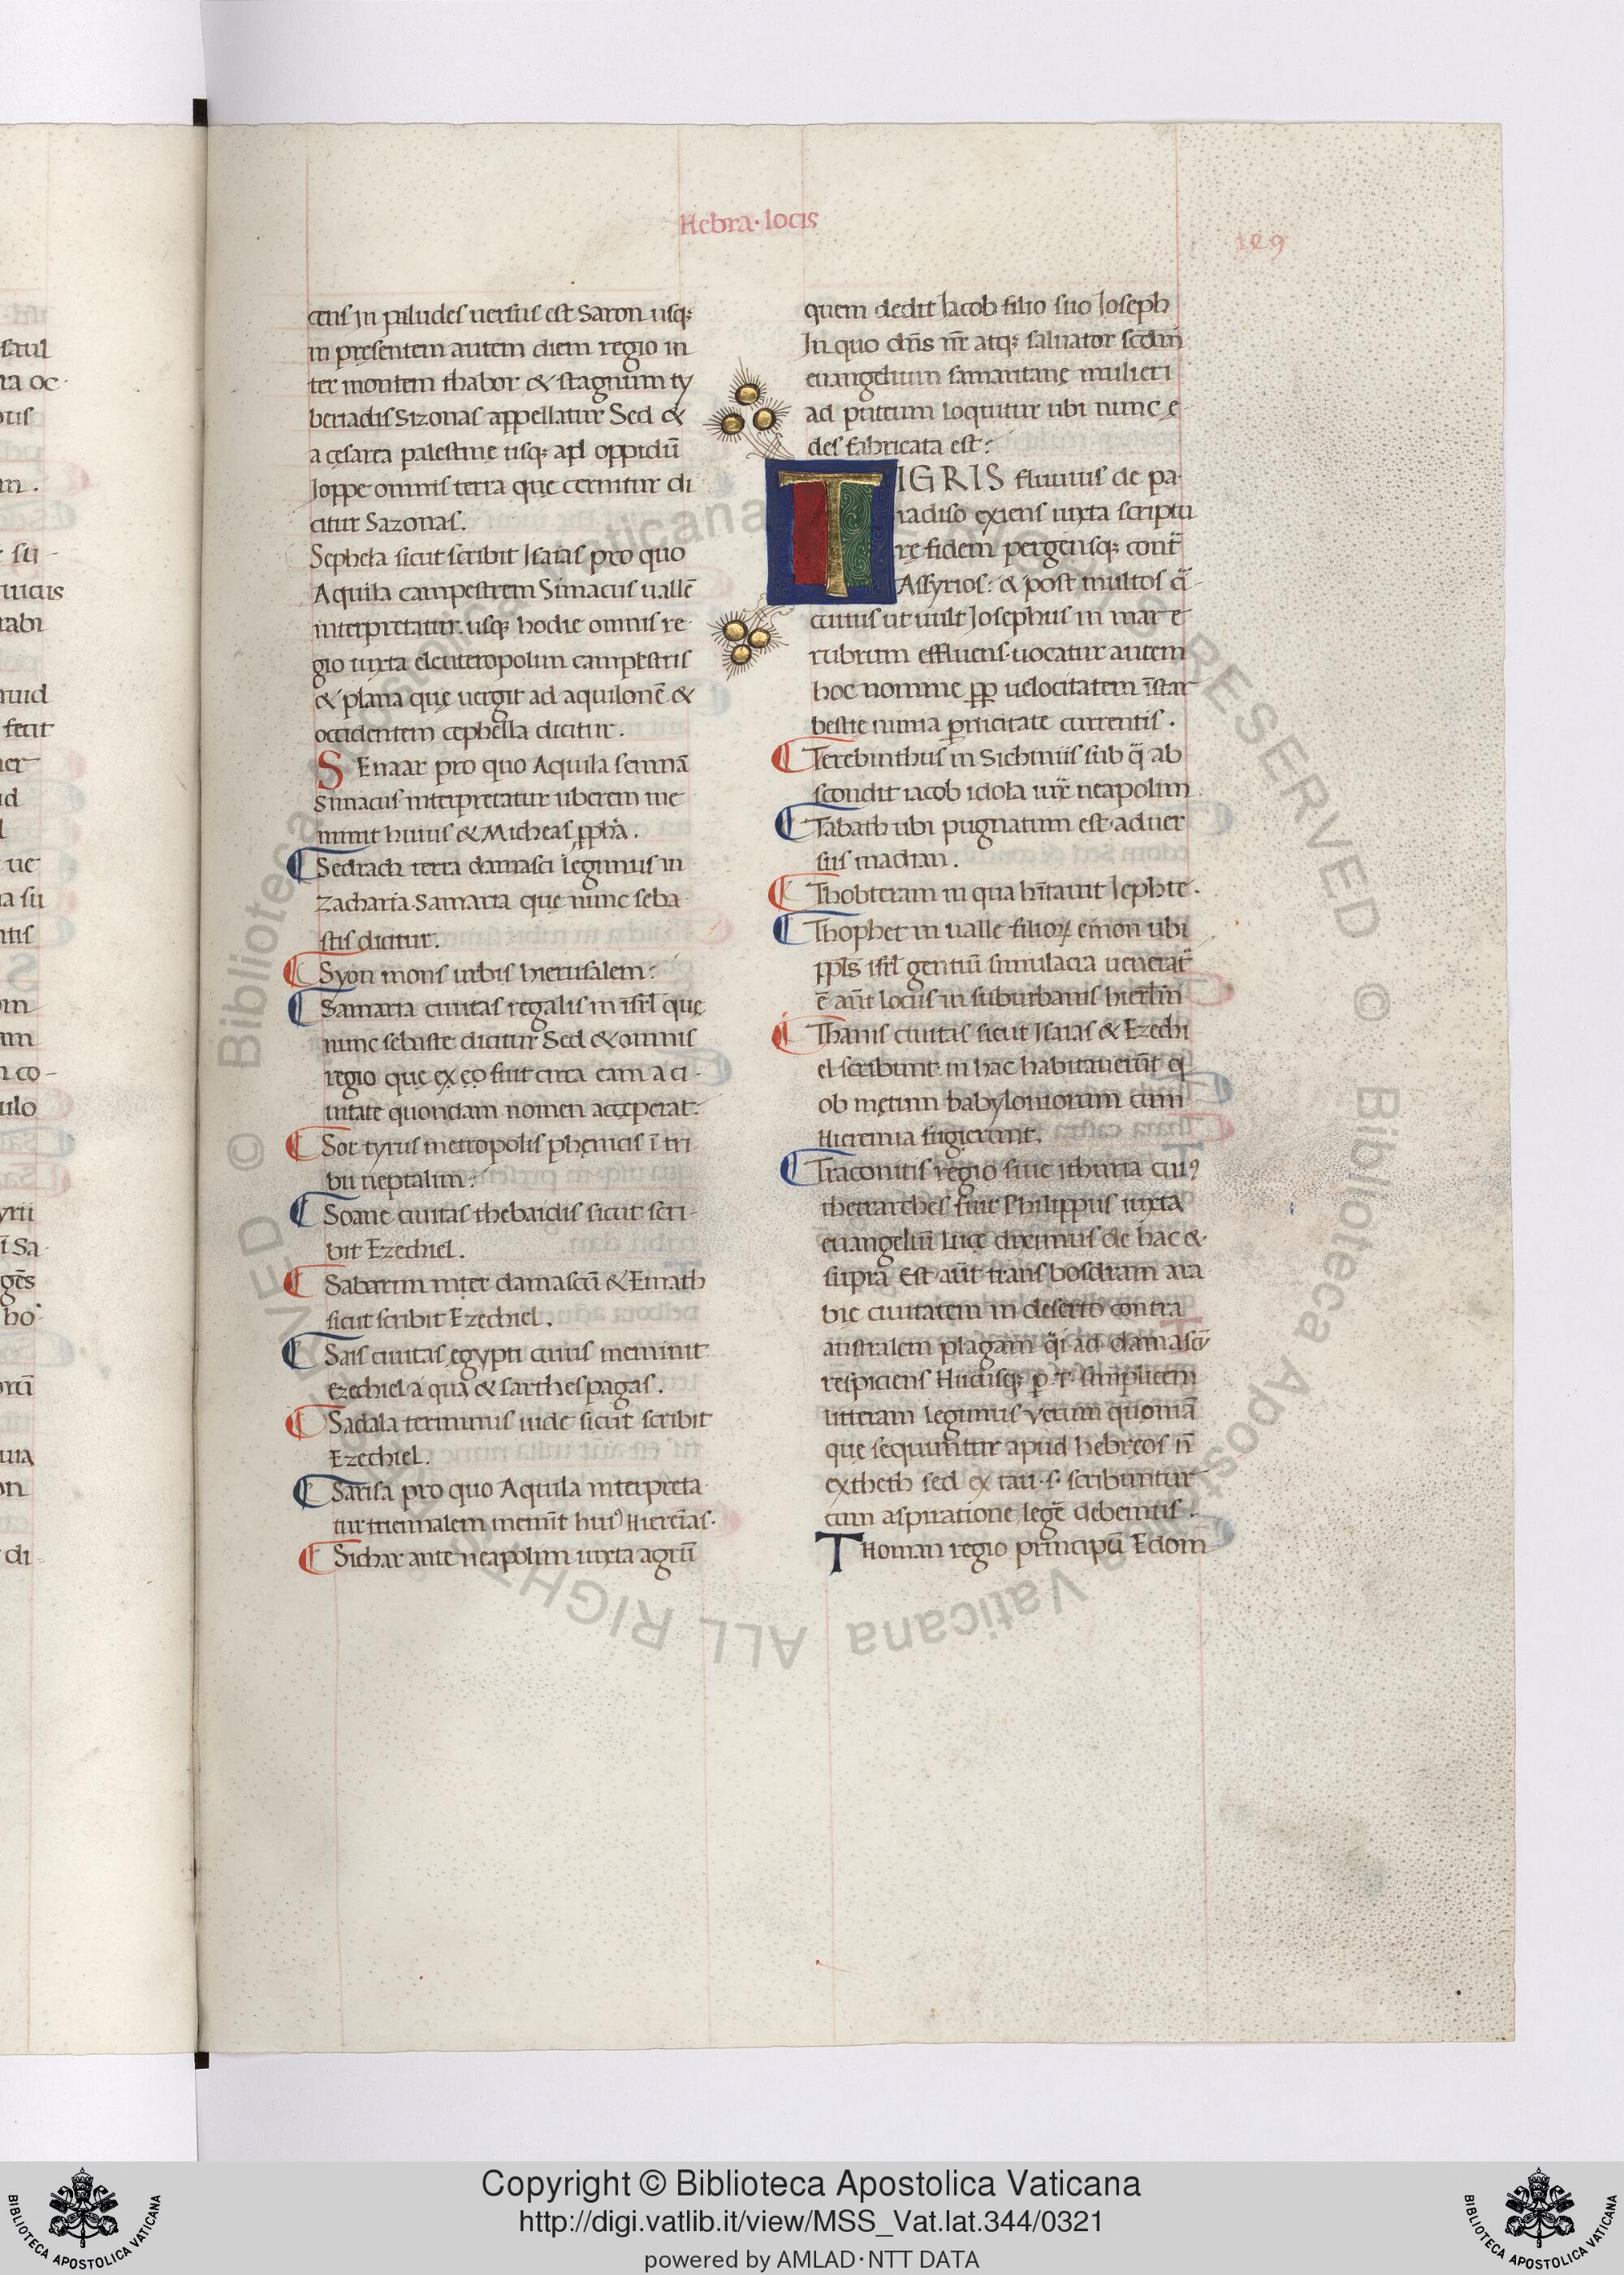 Hebra·locis
129
cens in paludes uersus est Saron usq;
in presentem autem diem regio in
ter montem thabor & stagnum ty
beriadis Sizonas appellatur Sed &
a cesarea palestinę usq; ad oppidū
Joppe omnis terra que cernitur di
citur Sazonas.
Sephela sicut scribit Isaias pro quo
Aquila campestrem Simacus uallē
interpretatur. usq; hodie omnis re-
gio iuxta eleuteropolim campestris
& plana quę uergit ad aquilonē &
occidentem cephella dicitur.
SEnaar pro quo Aquila semnā
Simacus interpretatur uberem me
minit huius & Micheas ꝓpha.
Sedrach terra damasci legimus in
Zacharia. Samaria quę nunc seba-
stis dicitur.
Syon mons urbis hierusalem:
Samaria ciuitas regalis in isrl̄ quę
nunc sebaste dicitur Sed & omnis
regio quę ex eo fuit circa eam a ci-
uitate quondam nomen acceperat:
Sor tyrus metropolis phęnicis ī tri
bu neptalim:
Soane ciuitas thebaidis sicut scri-
bit Ezechiel.
Sabarim inter damascū & Emath
sicut scribit Ezechiel.
Sais ciuitas egypti cuius meminit
Ezechiel a qua & saithes pagas.
Sadala terminus iude sicut scribit
Ezechiel.
Sarisa pro quo Aquila interpreta-
tur triennalem memit̄ huiꝰ Hierem̄ias.
Sichar ante neapolim iuxta agrū
quem dedit Jacob filio suo Joseph
In quo dn̄s nr̄ atq; saluator scdm̄
euangelium samaritanę mulieri
ad puteum loquitur ubi nunc ę-
des fabricata est:
TIGRIS fluuius de pa-
radiso exiens iuxta scriptu
rę fidem pergensq; cont̄
Assyrios: & post multos q̄-
cuitus ut uult Josephus in mare
rubrum effluens. uocatur autem
hoc nomine ꝓp uelocitatem īstar
bestie nimia ꝑnicitate currentis.
Terebinthus in Sichimis sub q̄ ab
scondit iacob idola iux̄ neapolim
Tabath ubi pugnatum est aduer
sus madian.
Thobteram in qua hītauit Jephte.
Thophet in ualle filioꝝ emon ubi
ppl̄s isrl̄ gentiū simulacra uenerat̄
ē aūt locus in suburbanis hierl̄m
Thanis ciuitas sicut Isaias & Ezechi
el scribunt. in hac habitauerūt q
ob metum babyloniorum cum
Hieremia fugierunt.
Traconitis regio siue ithuria cuiꝰ
thetrarches fuit Philippus iuxta
euangeliū lucę diximus de hac &
supra Est aūt trans bosdram ara
bię ciuitatem in deserto contra
australem plagam q̄i ad damascū
respiciens Hucusq; ꝑ T. simplicem
litteram legimus Verum quoniā
quę sequuntur apud hebręos n̄
ex theth sed ex tau .s. scribuntur
cum aspiratione legē debemus.
THoman regio principū Edom
Copyright © Biblioteca Apostolica Vaticana
http://digi.vatlib.it/view/MSS_Vat.lat.344/0321
powered by AMLAD·NTT DATA
BIBLIOTECA APOSTOLICA VATICANA
BIBLIOTECA APOSTOLICA VATICANA